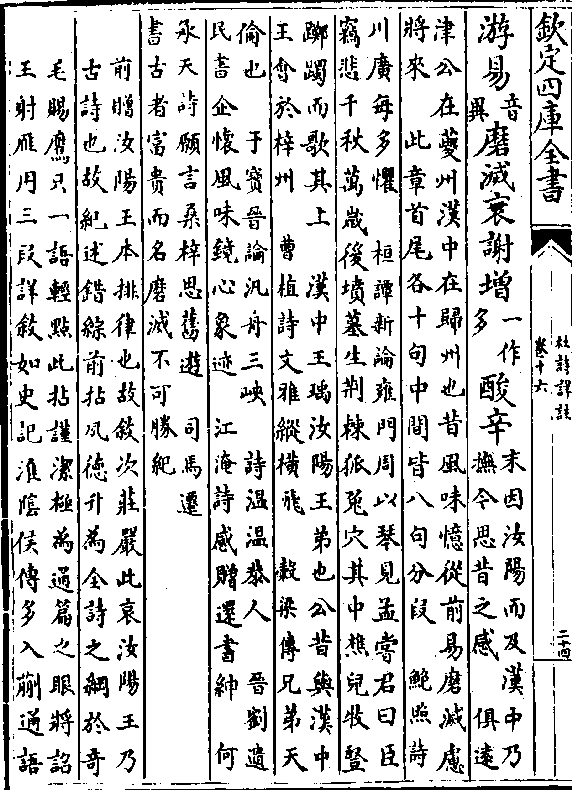 欽定四庫全書
杜詩詳註
卷十六
二十四
游易音異磨滅衰謝增一作多酸辛末因汝陽而及漢中乃
撫今思昔之感 俱遠
津公在夔州漢中在歸州也昔風味憶從前易磨滅慮
將來 此章首尾各十句中間皆八句分段 鮑照詩
川廣每多懼 桓譚新論雍門周以琴見孟嘗君曰臣
竊悲千秋萬歲後墳墓生荆棘狐兔穴其中樵兒牧豎
躑躅而歌其上 漢中王瑀汝陽王弟也公昔與漢中
王會於梓州 曹植詩文雅縱橫飛 穀梁傳兄弟天
倫也 于寶晉論汎舟三峽 詩溫溫恭人 晉劉遺
民書企懷風味鏡心象迹 江淹詩感贈還書紳 何
承天詩願言桑梓思舊遊 司馬遷
書古者富貴而名磨滅不可勝紀
前贈汝陽王本排律也故敘次莊嚴此哀汝陽王乃
古詩也故紀述錯綜前拈夙德升為全詩之綱於奇
毛賜鷹只一語輕點此拈謹潔極為通篇之眼將詔
王射雁用三段詳敘如史記淮陰侯傳多入蒯通語